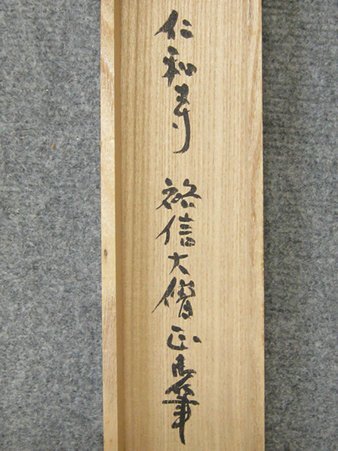 仁和寺 裕信大僧正御筆